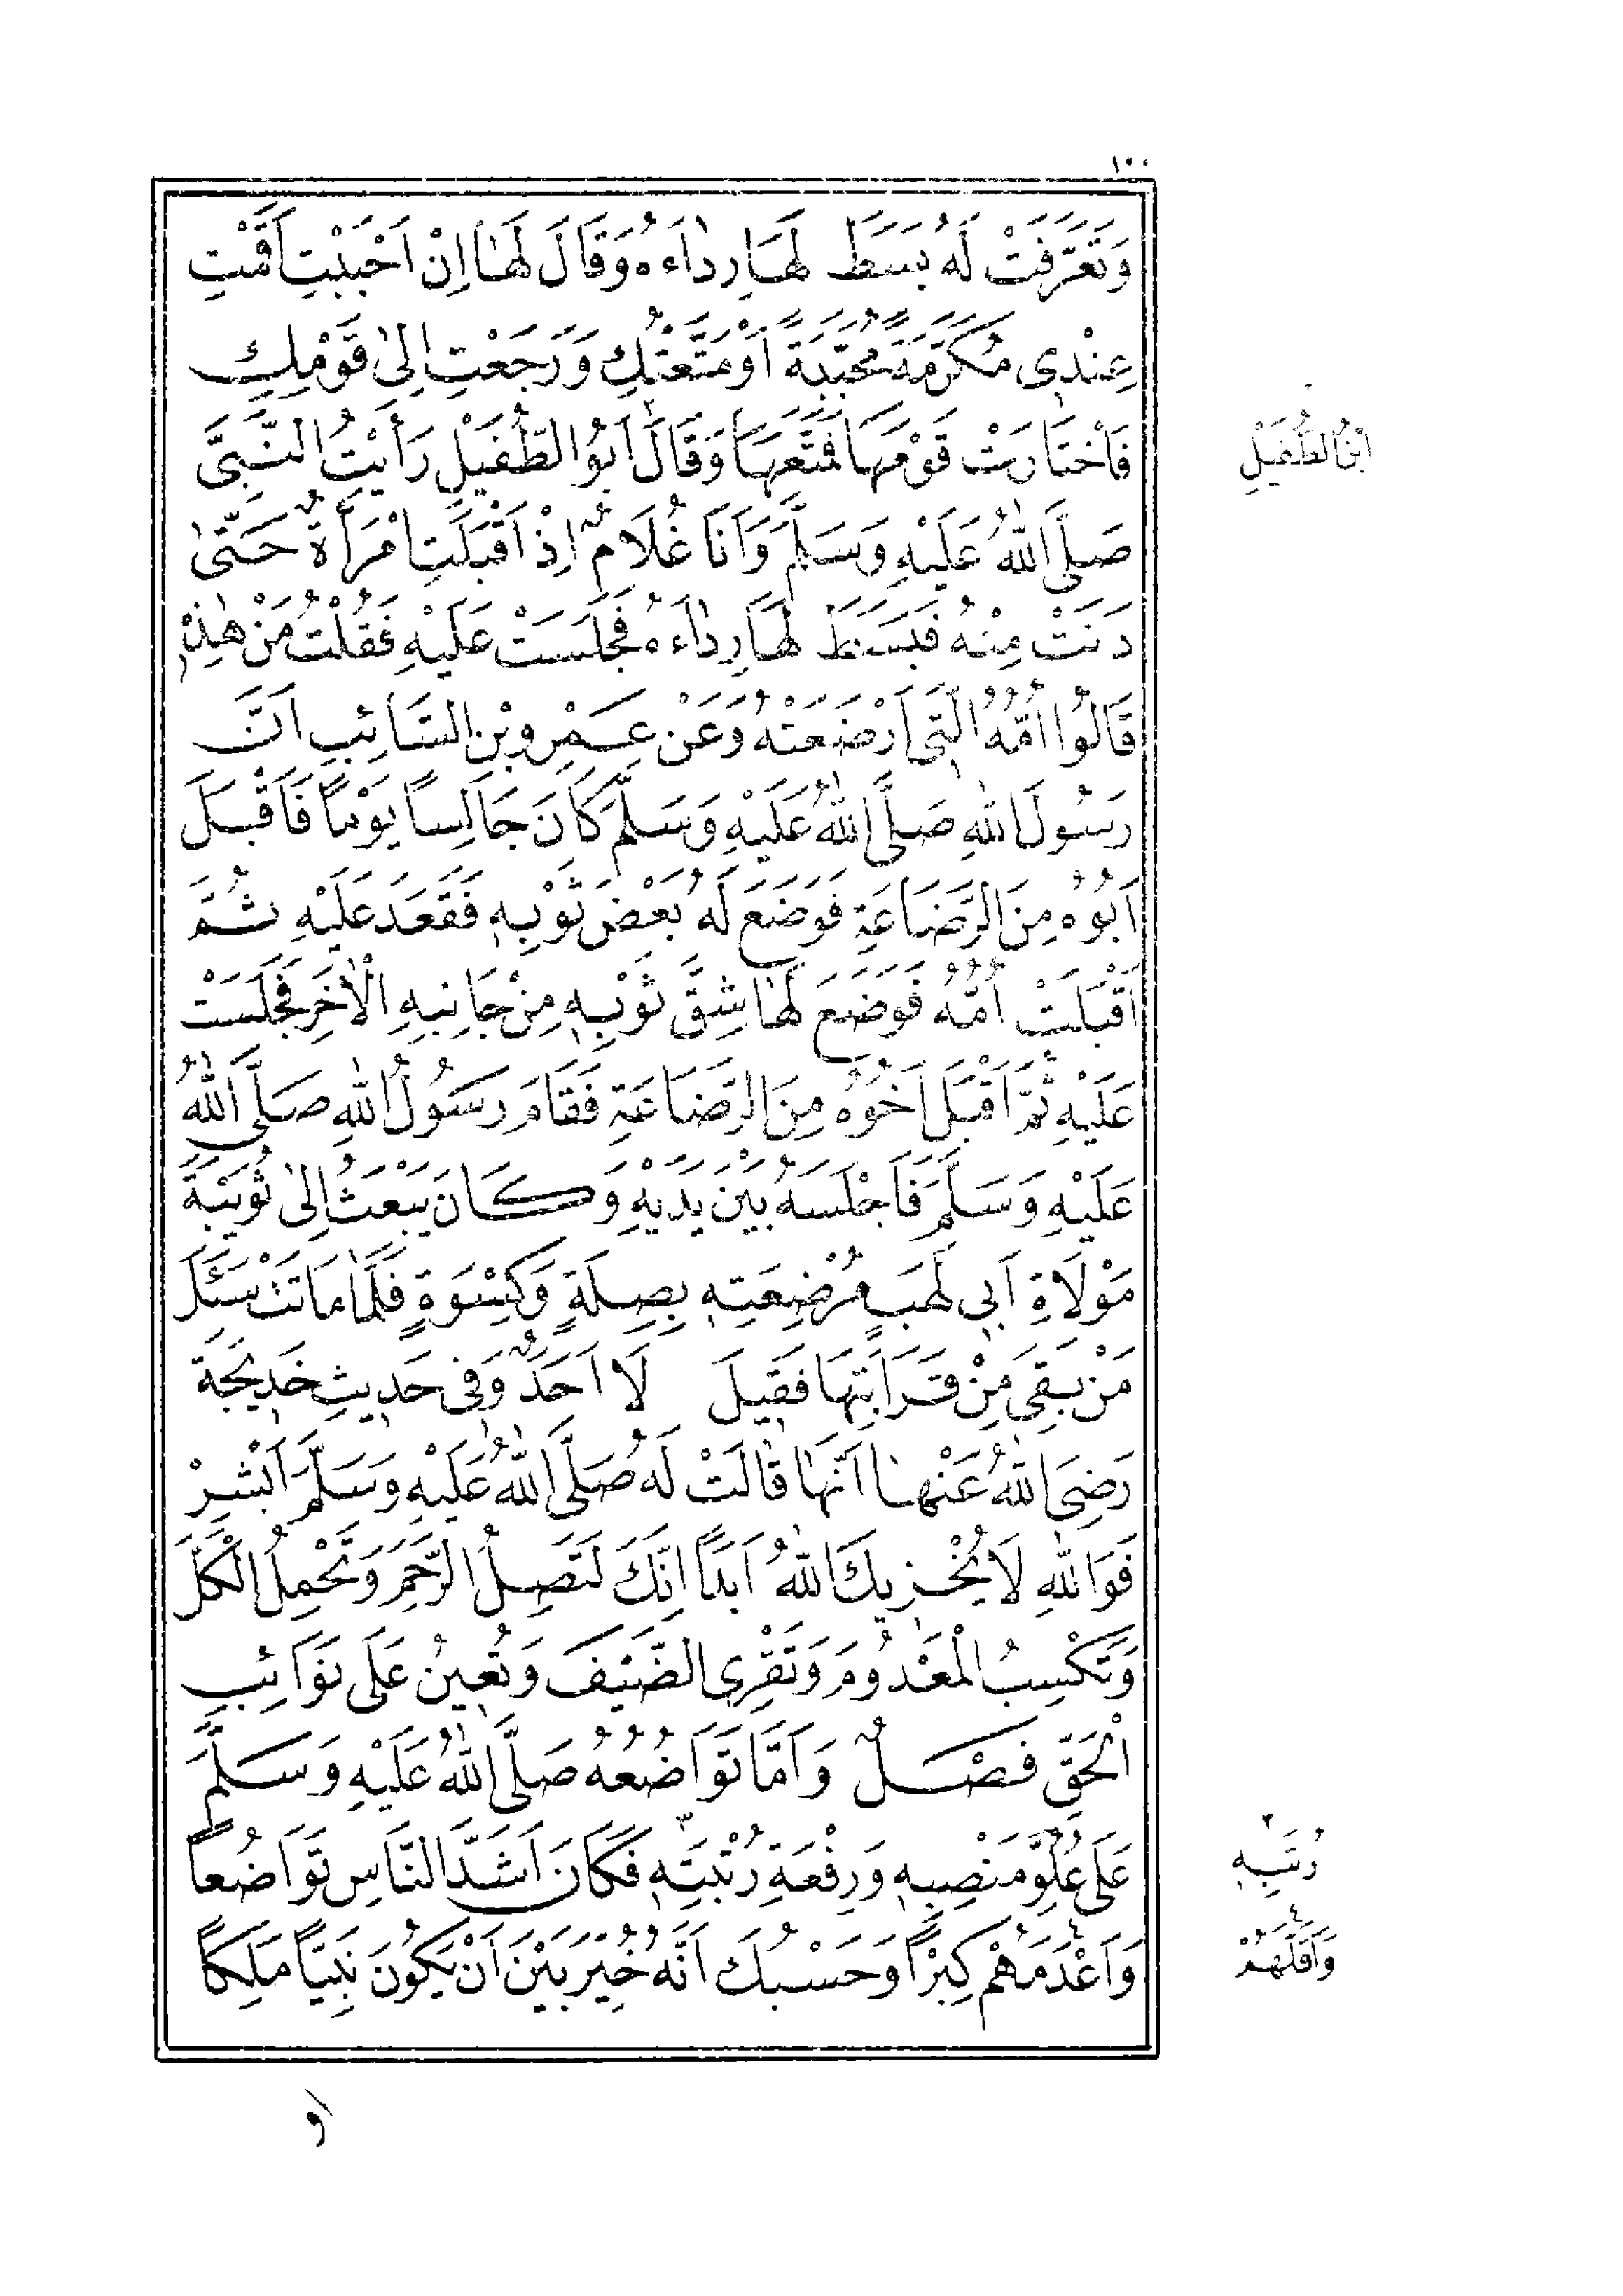 ١٠٠
وَتَعَرَّفَتْ لَهُ بَسَطَ لَهَا رِدَاءَهُ وَقَالَ لَهَا اِنْ اَحْبَبْتِ اَقَمْتِ
عِنْدِي مُكَرَّمَةً مُحَبَّبَةً اَوْ مَتَّعْتُكِ وَرَجَعْتِ اِلٰى قَوْمِكِ
فَاخْتَارَتْ قَوْمَهَا فَمَتَّعَهَا وَقَالَ اَبُو الطُّفَيْلِ رَأَيْتُ النَّبِيَّ
ابْنُ الطُّفَيْلِ
صَلَّى اللّٰهُ عَلَيْهِ وَسَلَّمَ وَاَنَا غُلَامٌ اِذْ اَقْبَلَتِ امْرَأَةٌ حَتّٰى
دَنَتْ مِنْهُ فَبَسَطَ لَهَا رِدَاءَهُ فَجَلَسَتْ عَلَيْهِ فَقُلْتُ مَنْ هٰذِهِ
قَالُوا اُمُّهُ الَّتِي اَرْضَعَتْهُ وَعَنْ عَمْرِو بْنِ السَّائِبِ اَنَّ
رَسُولَ اللّٰهِ صَلَّى اللّٰهُ عَلَيْهِ وَسَلَّمَ كَانَ جَالِسًا يَوْمًا فَاَقْبَلَ
اَبُوهُ مِنَ الرَّضَاعَةِ فَوَضَعَ لَهُ بَعْضَ ثَوْبِهِ فَقَعَدَ عَلَيْهِ ثُمَّ
اَقْبَلَتْ اُمُّهُ فَوَضَعَ لَهَا شِقَّ ثَوْبِهِ مِنْ جَانِبِهِ الْاٰخَرِ فَجَلَسَتْ
عَلَيْهِ ثُمَّ اَقْبَلَ اَخُوهُ مِنَ الرَّضَاعَةِ فَقَامَ رَسُولُ اللّٰهِ صَلَّى اللّٰهُ
عَلَيْهِ وَسَلَّمَ فَاَجْلَسَهُ بَيْنَ يَدَيْهِ وَكَانَ يَبْعَثُ اِلٰى ثُوَيْبَةَ
مَوْلَاةِ اَبِي لَهَبٍ مُرْضِعَتِهِ بِصِلَةٍ وَكِسْوَةٍ فَلَمَّا مَاتَتْ سَئَلَ
مَنْ بَقِيَ مِنْ قَرَابَتِهَا فَقِيلَ لَا اَحَدٌ وَفِي حَدِيثِ خَدِيجَةَ
رَضِيَ اللّٰهُ عَنْهَا اَنَّهَا قَالَتْ لَهُ صَلَّى اللّٰهُ عَلَيْهِ وَسَلَّمَ اَبْشِرْ
فَوَاللّٰهِ لَا يُخْزِيكَ اللّٰهُ اَبَدًا اِنَّكَ لَتَصِلُ الرَّحِمَ وَتَحْمِلُ الْكَلَّ
وَتَكْسِبُ الْمَعْدُومَ وَتَقْرِي الضَّيْفَ وَتُعِينُ عَلَى نَوَائِبِ
الْحَقِّ فَصْلٌ وَاَمَّا تَوَاضُعُهُ صَلَّى اللّٰهُ عَلَيْهِ وَسَلَّمَ
عَلَى عُلُوِّ مَنْصِبِهِ وَرِفْعَةِ رُتْبَتِهِ فَكَانَ اَشَدَّ النَّاسِ تَوَاضُعًا
٢
رُتَبِهِ
وَاَعْدَمَهُمْ كِبْرًا وَحَسْبُكَ اَنَّهُ خُيِّرَ بَيْنَ اَنْ يَكُونَ نَبِيًّا مَلِكًا
٤
وَاَقَلَّهُمْ
اَو